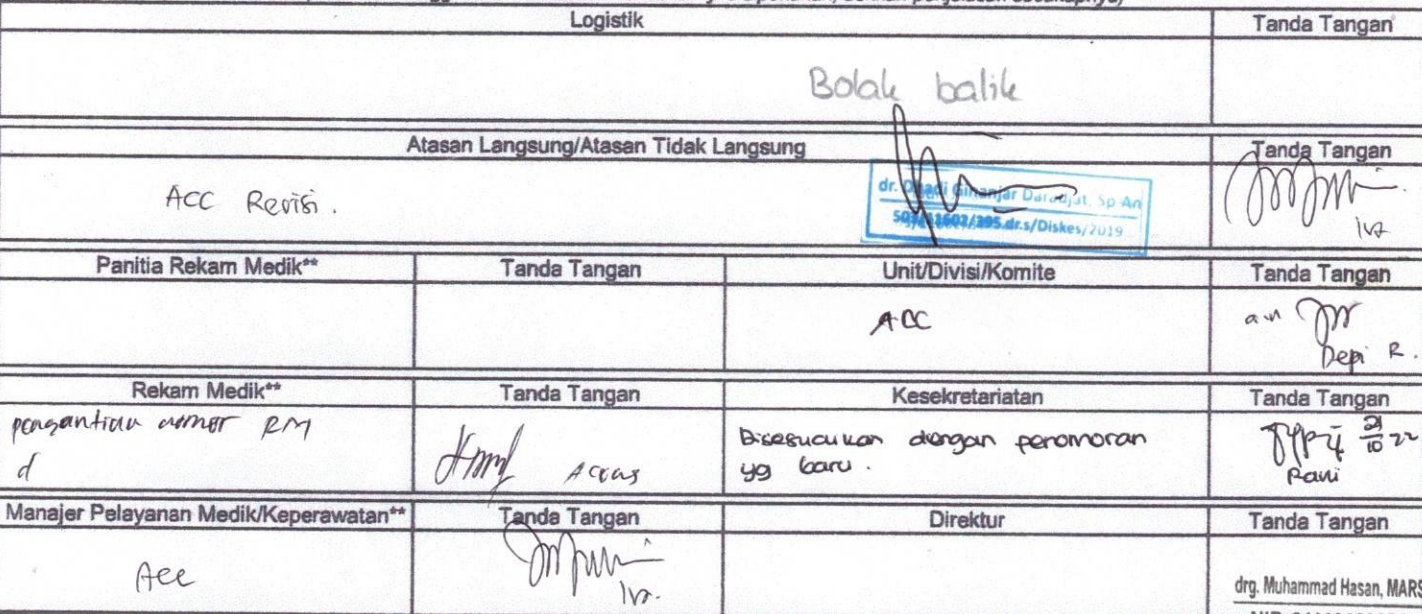 Logistik Tanda Tangan
Bolak balik
Atasan Langsung/Atasan Tidak Langsung Tanda Tangan
ACC Revisi.
dr. Ginanjar Daradjat, Sp-An
/395.dr.s/Diskes/2019
Iva
Panitia Rekam Medik** Tanda Tangan Unit/Divisi/Komite Tanda Tangan
ACC
a.n
Depi R.
Rekam Medik** Tanda Tangan Kesekretariatan Tanda Tangan
nomor RM
Disesuaikan dengan penomoran
yg baru.
21/10 22
Rani
Manajer Pelayanan Medik/Keperawatan** Tanda Tangan Direktur Tanda Tangan
Acc
Iva.
drg. Muhammad Hasan, MARS